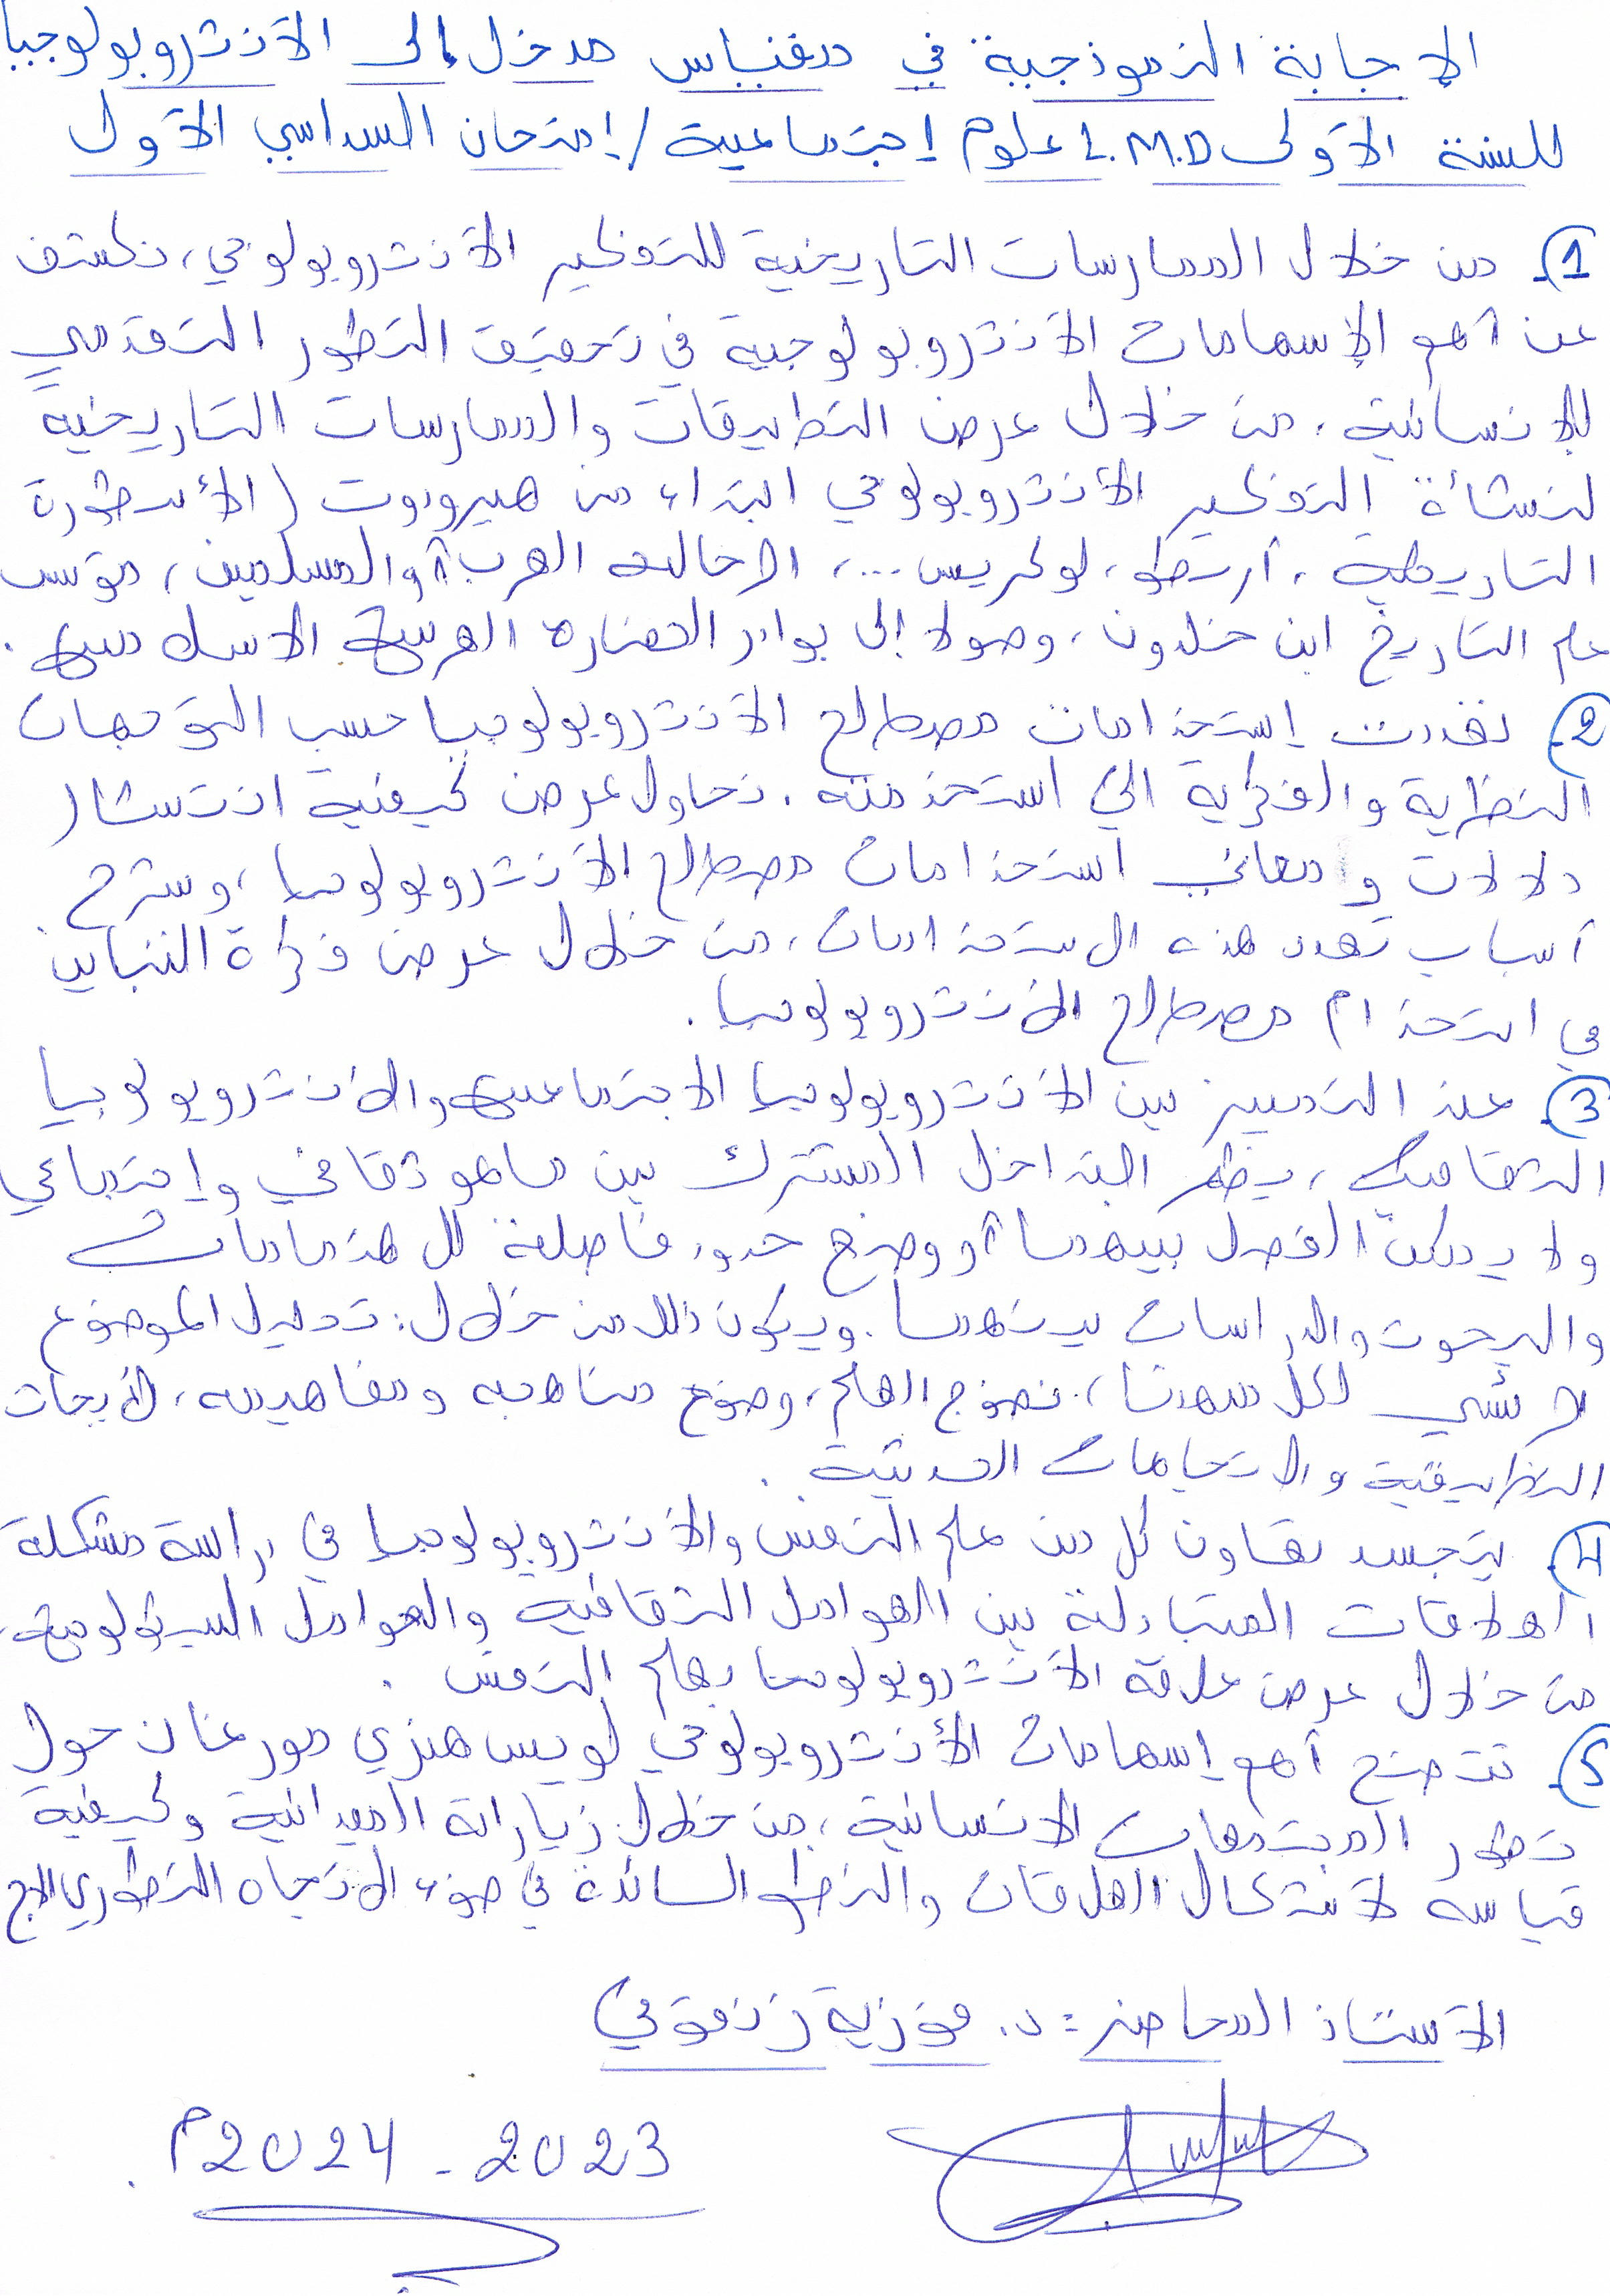 الإجابة النموذجية في مقياس مدخل إلى الأنثروبولوجيا
للسنة الأولى L.M.D علوم إجتماعية / إمتحان السداسي الأول
1 من خلال الممارسات التاريخية للتفكير الأنثروبولوجي، نكشف
عن أهم الإسهامات الأنثروبولوجية في تحقيق التطور التقدمي
للإنسانية، من خلال عرض التطبيقات والممارسات التاريخية
لنشأة التفكير الأنثروبولوجي ابتداء من هيرودوت (الأسطورة
التاريخية، أرسطو، لوكريس...، الرحالة العرب والمسلمين، مؤسس
علم التاريخ ابن خلدون، وصولا إلى بوادر الحضارة العربية الاسلامية.
2 تعددت إستخدامات مصطلح الأنثروبولوجيا حسب التوجهات
النظرية والفكرية التي استخدمته. نحاول عرض كيفية انتشار
دلالات و معاني استخدامات مصطلح الأنثروبولوجيا، وشرح
أسباب تعدد هذه الاستخدامات، من خلال عرض فكرة التباين
في استخدام مصطلح الأنثروبولوجيا.
3 عند التمييز بين الأنثروبولوجيا الاجتماعية والأنثروبولوجيا
الثقافية، يظهر التداخل المشترك بين ماهو ثقافي وإجتماعي
ولا يمكن الفصل بينهما أو وضع حدود فاصلة للاهتمامات
والبحوث والدراسات بينهما. ويكون ذلك من خلال: تحليل الموضوع
الرئيسي لكل منهما، نضوج العلم، وضوح مناهجه ومفاهيمه، الأبحاث
التطبيقية والاتجاهات الحديثة.
4 يتجسد تعاون كل من علم النفس والأنثروبولوجيا في دراسة مشكلة
العلاقات المتبادلة بين العوامل الثقافية والعوامل السيكولوجية،
من خلال عرض علاقة الأنثروبولوجيا بعلم النفس.
5 تتضح أهم إسهامات الأنثروبولوجي لويس هنري مورغان حول
تطور المجتمعات الانسانية، من خلال زياراته الميدانية وكيفية
قياسه لأشكال العلاقات والنظم السائدة في ضوء الاتجاه التطوري
الأستاذ المحاضر: د. فوزية زنقوفي
2023 - 2024م.